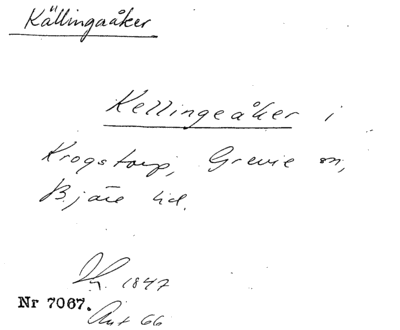 Källingaåker
Kellingeåker i
Krogstorp, Grevie sn,
Bjäre hd.
1847
Nr 7067.
Ant 66